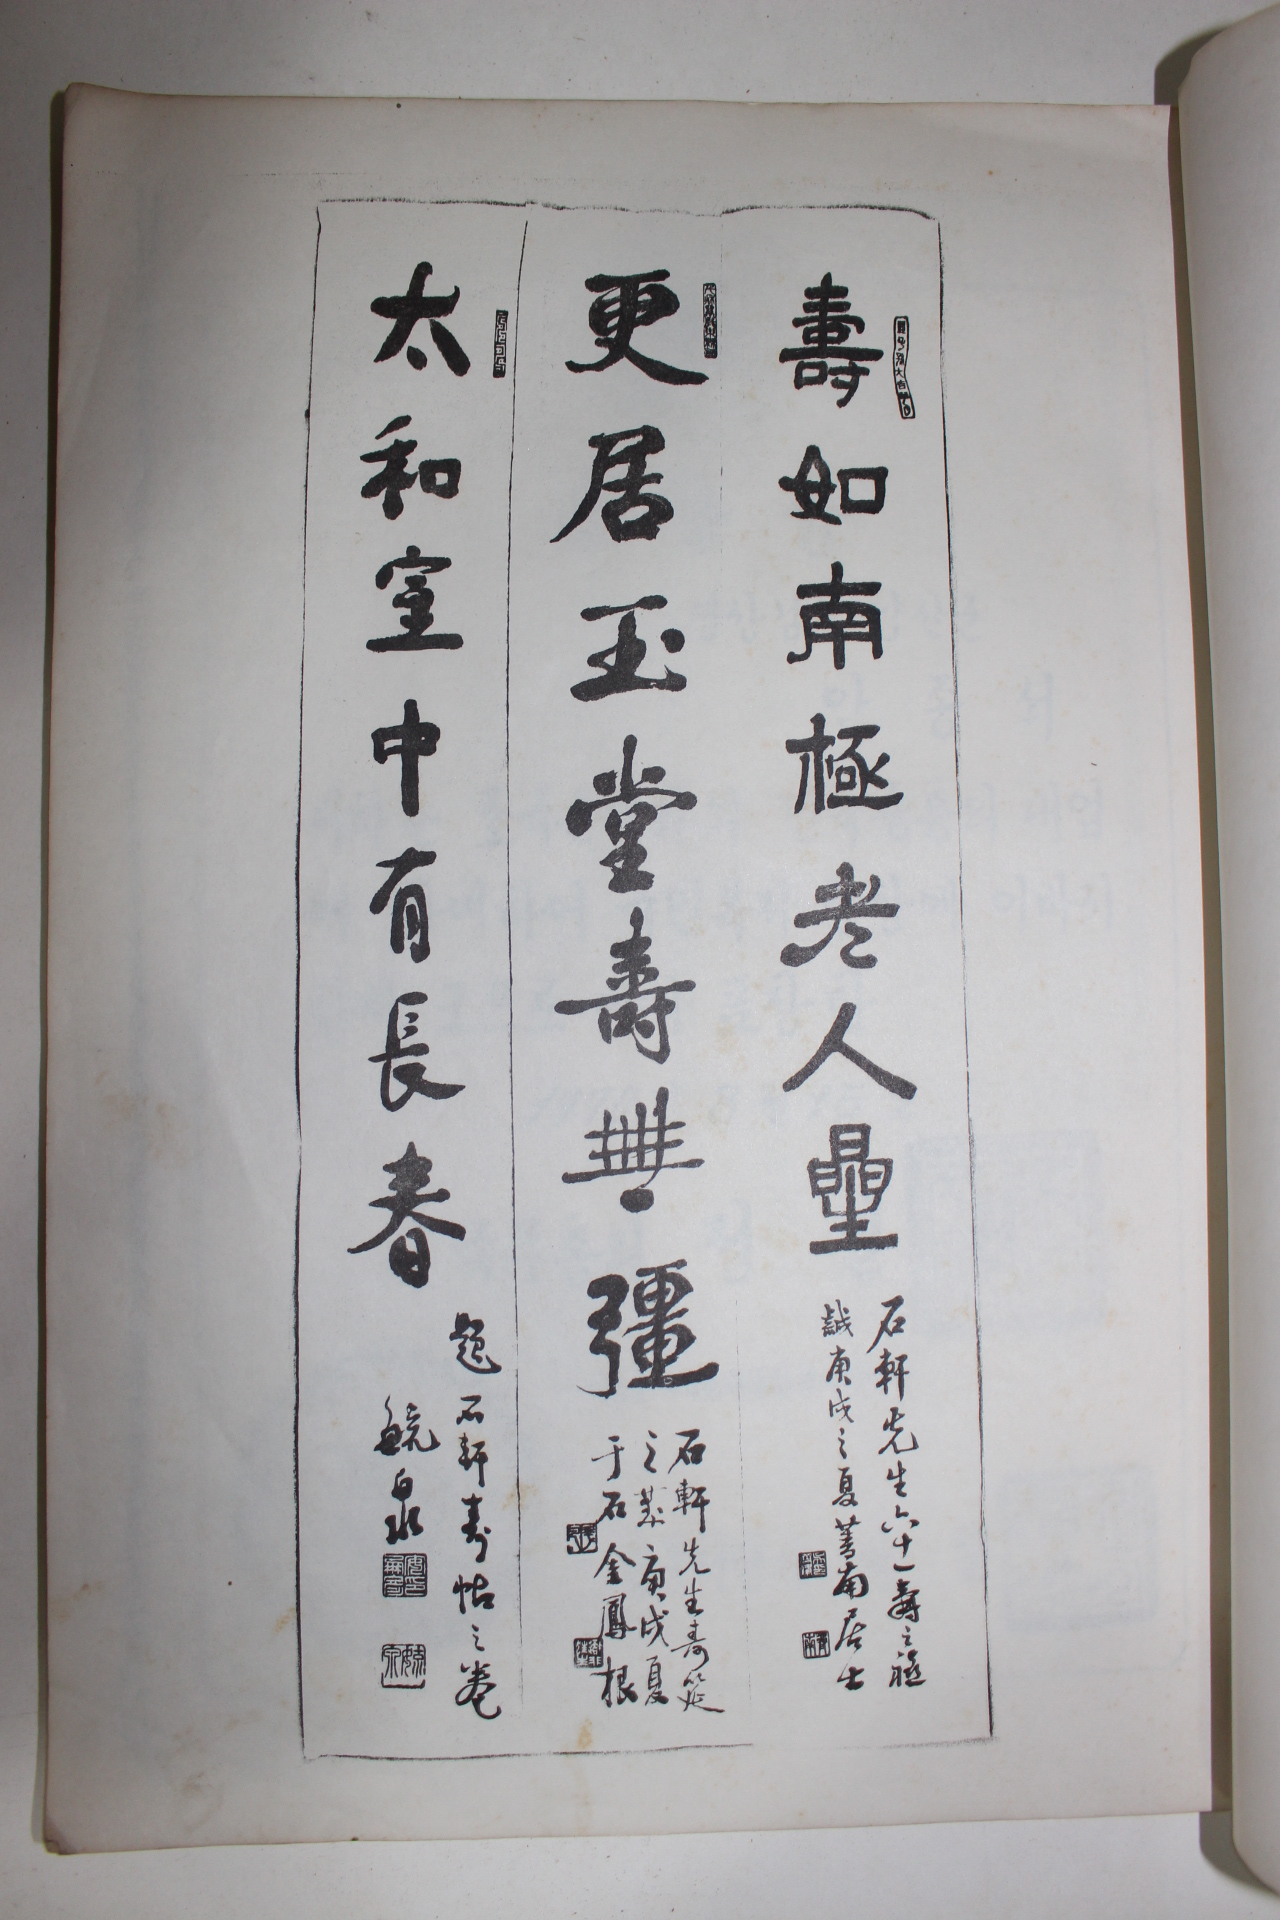 壽如南極老人星
石軒先生六十一壽之筵
庚戌之夏菁南居士
更居玉堂壽無疆
石軒先生壽筵
之慕庚戌夏
于石金鳳根
太和室中有長春
題石軒壽帖之卷
毓泉